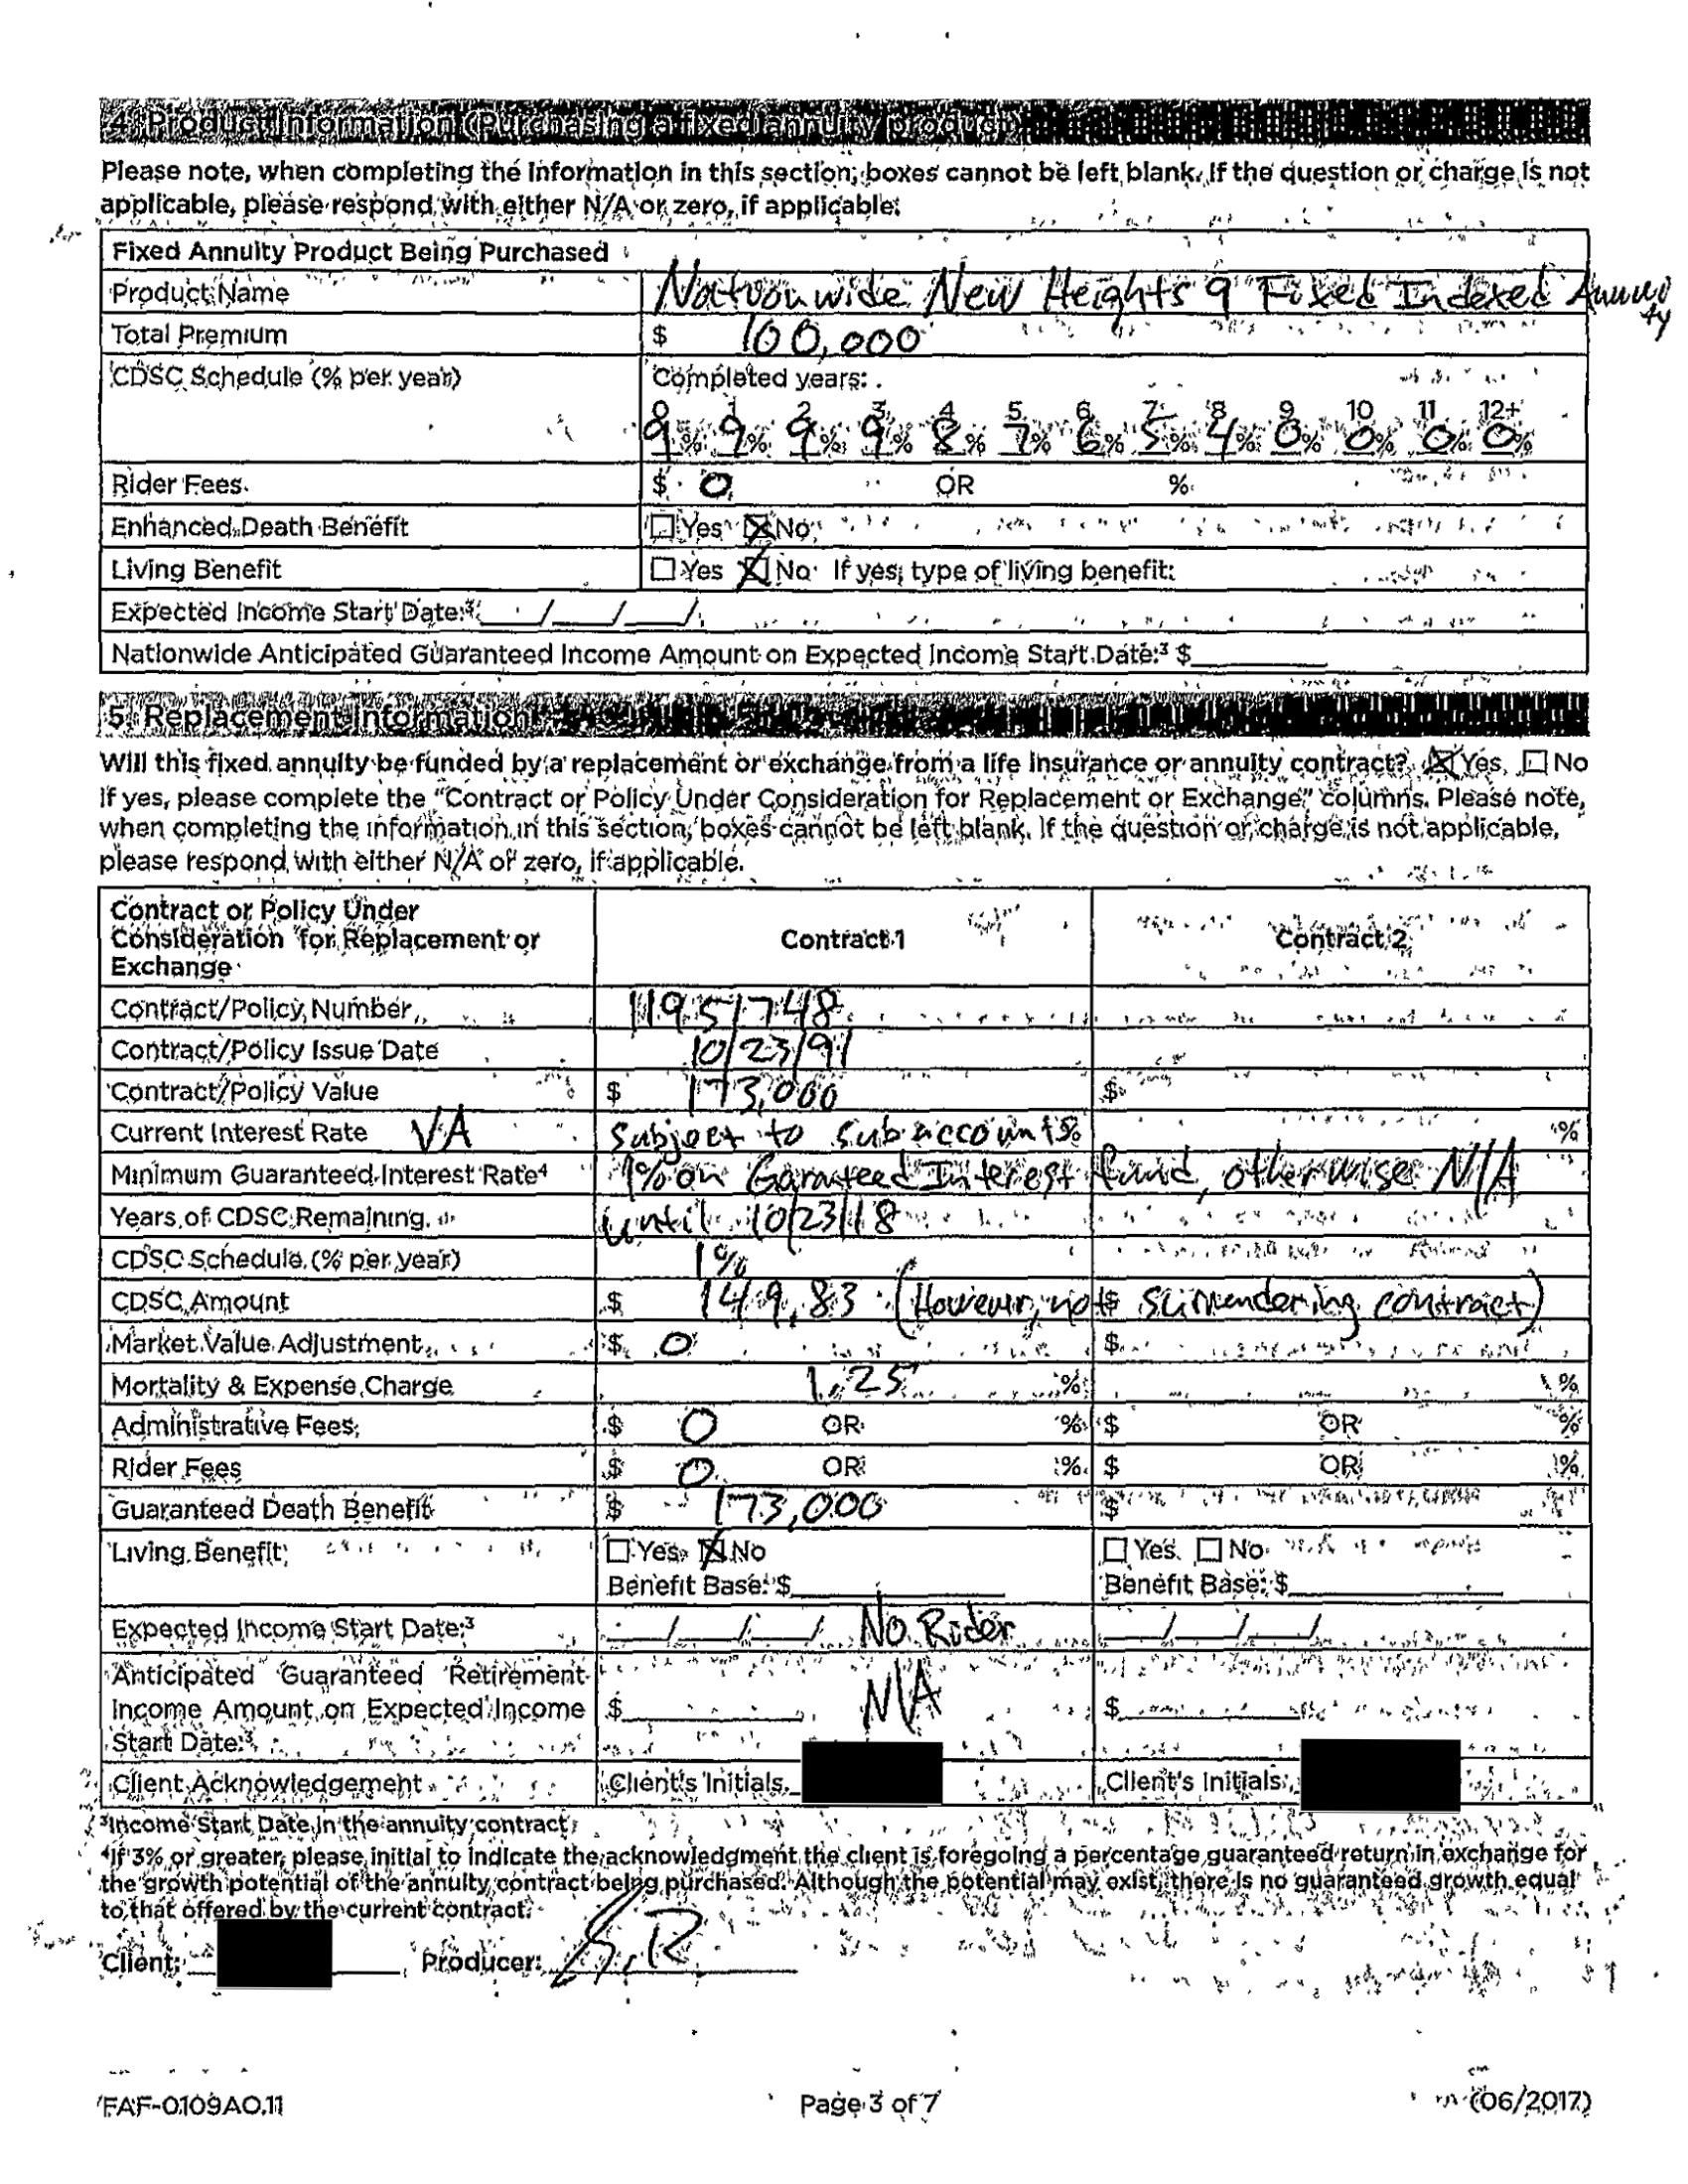 4. Product Information (Purchasing a fixed annuity product)
Please note, when completing the information in this section, boxes cannot be left blank. If the question or charge is not
applicable, please respond with either N/A or zero, if applicable.
Fixed Annuity Product Being Purchased
Product Name Nationwide New Heights 9 Fixed Indexed Annuity
Total Premium $ 100,000
CDSC Schedule (% per year) Completed years:
0 1 2 3 4 5 6 7 8 9 10 11 12+
9% 9% 9% 9% 8% 7% 6% 5% 4% 0% 0% 0% 0%
Rider Fees $ 0 OR %
Enhanced Death Benefit ☐ Yes ☒ No
Living Benefit ☐ Yes ☒ No If yes, type of living benefit:
Expected Income Start Date:³ __/__/__/
Nationwide Anticipated Guaranteed Income Amount on Expected Income Start Date:³ $
5. Replacement Information
Will this fixed annuity be funded by a replacement or exchange from a life insurance or annuity contract? ☒ Yes ☐ No
If yes, please complete the "Contract or Policy Under Consideration for Replacement or Exchange" columns. Please note,
when completing the information in this section, boxes cannot be left blank. If the question or charge is not applicable,
please respond with either N/A or zero, if applicable.
Contract or Policy Under
Consideration for Replacement or
Exchange
Contract 1 Contract 2
Contract/Policy Number 11951748
Contract/Policy Issue Date 10/23/91
Contract/Policy Value $ 173,000 $
Current Interest Rate VA subject to subaccounts % %
Minimum Guaranteed Interest Rate⁴ 1% on Garanteed Interest fund, otherwise N/A
Years of CDSC Remaining until 10/23/18
CDSC Schedule (% per year) 1%
CDSC Amount $ 149.83 (However, not surrendering contract) $
Market Value Adjustment $ 0 $
Mortality & Expense Charge 1.25 % %
Administrative Fees $ 0 OR % $ OR %
Rider Fees $ 0 OR % $ OR %
Guaranteed Death Benefit $ 173,000 $
Living Benefit ☐ Yes ☒ No ☐ Yes ☐ No
Benefit Base: $ Benefit Base: $
Expected Income Start Date:³ __/__/__/ No Rider __/__/__/
Anticipated Guaranteed Retirement
Income Amount on Expected Income $ N/A $
Start Date:³
Client Acknowledgement Client's Initials Client's Initials:
³Income Start Date in the annuity contract
⁴If 3% or greater, please initial to indicate the acknowledgment the client is foregoing a percentage guaranteed return in exchange for
the growth potential of the annuity contract being purchased. Although the potential may exist, there is no guaranteed growth equal
to that offered by the current contract.
Client: Producer: S.R
FAF-0109AO.11 Page 3 of 7 (06/2017)